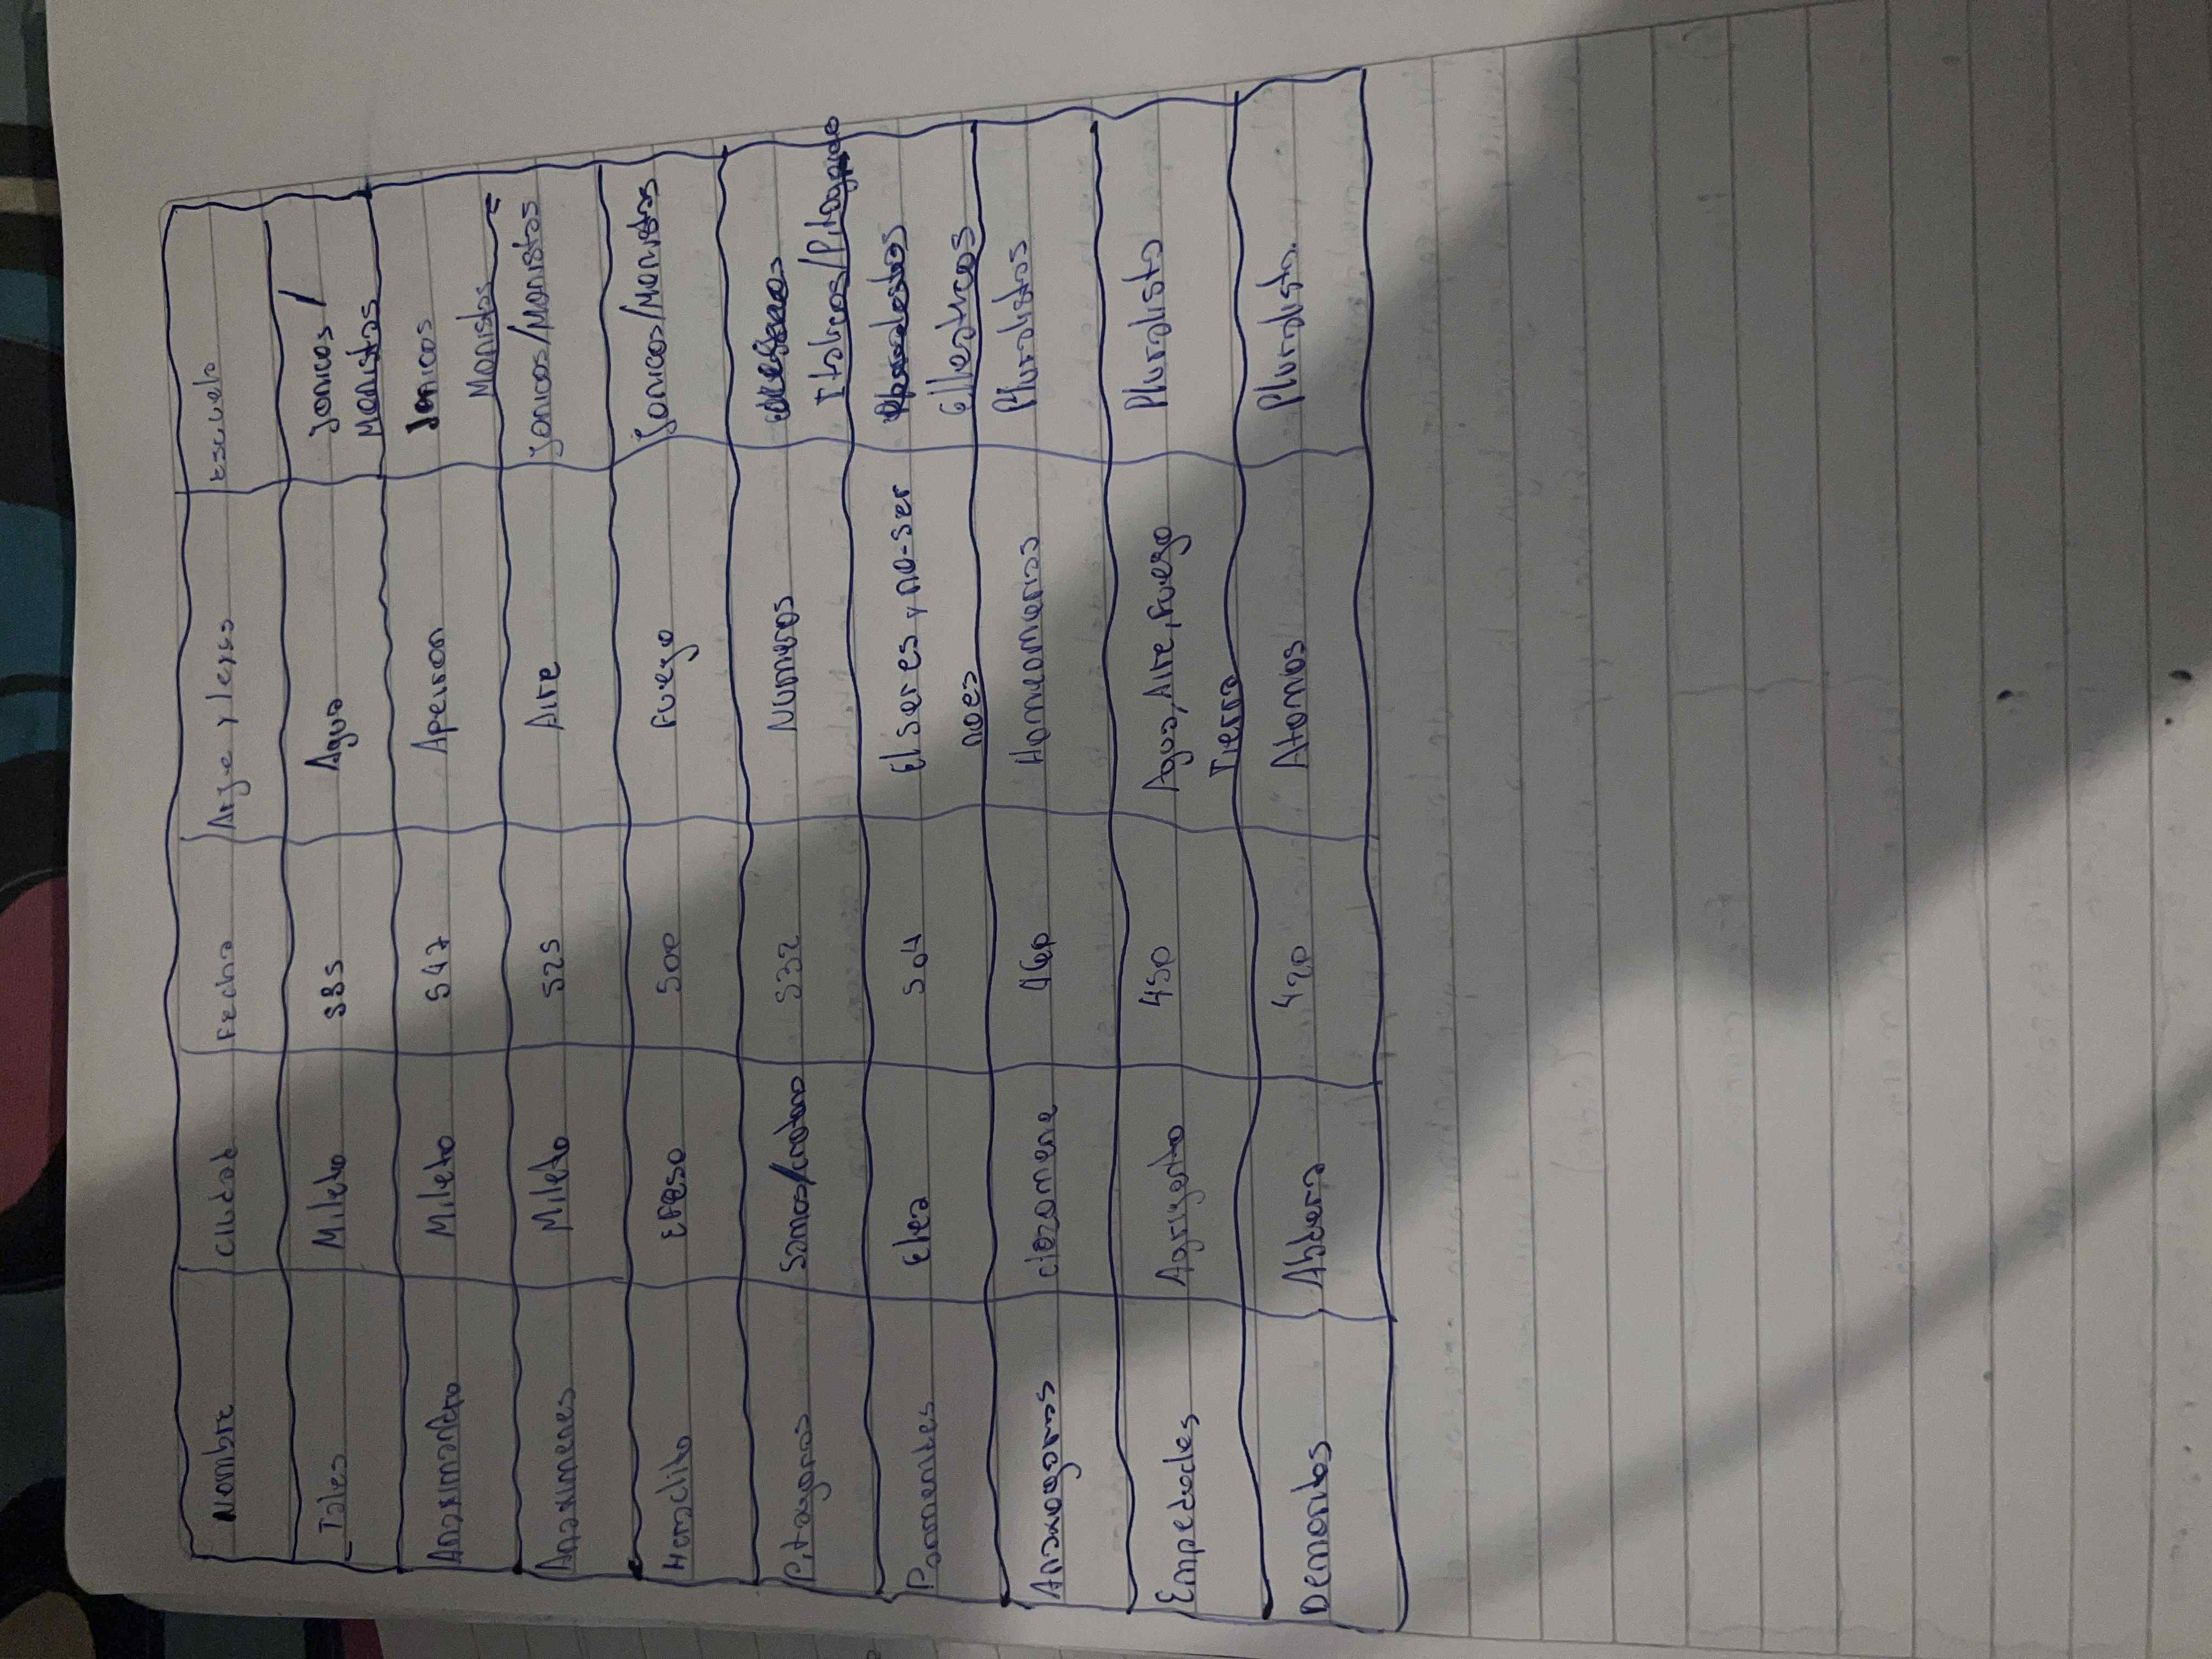 Nombre Ciudad Fecha Arje y leyes Escuela
Tales Mileto 585 Agua Jonicos/
Monistas
Anaximandro Mileto 547 Apeiron Jonicos
Monistas
Anaximenes Mileto 525 Aire Jonicos/Monistas
Heraclito Efeso 500 Fuego Jonicos/Monistas
Pitagoras Samos/crotona 532 Numeros
Italicos/Pitagorico
Parmenides Elea 504 El ser es y no-ser
no es Elleaticos
Anaxagoras clazomene 460 Homeomerias Pluralistas
Empedocles Agrigento 450 Agua, Aire, Fuego Pluralista
Tierra
Democritos Abdera 420 Atomos Pluralista